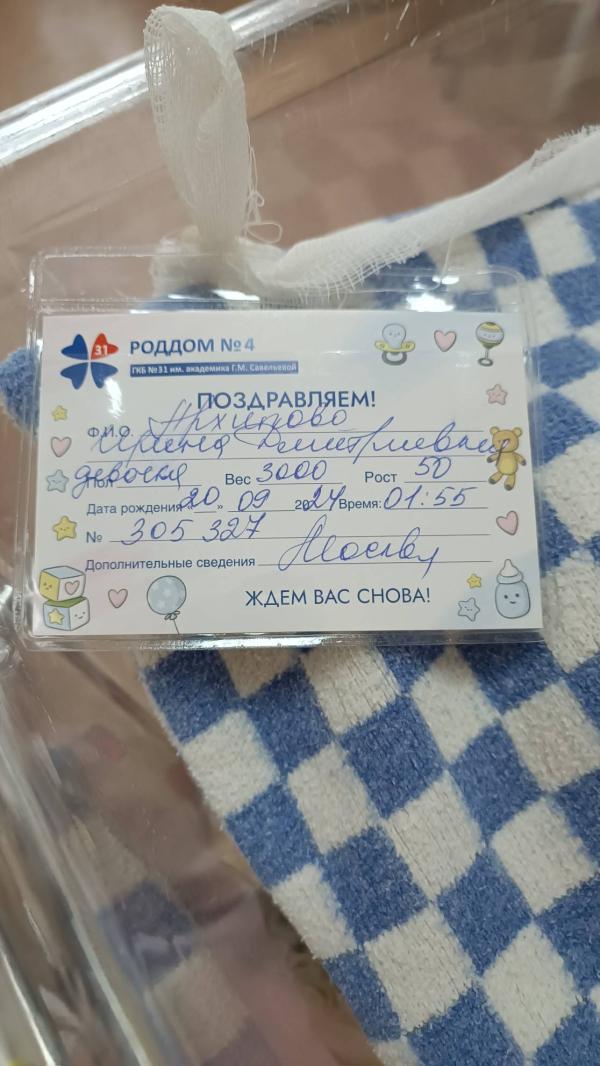 31 РОДДОМ №4
ГКБ №31 им. академика Г.М. Савельевой
ПОЗДРАВЛЯЕМ!
Ф.И.О. Архипова
Ирина Дмитриевна
Пол девочка Вес 3000 Рост 50
Дата рождения «20» 09 2024 Время: 01:55
№ 305 327
Дополнительные сведения Москва
ЖДЕМ ВАС СНОВА!